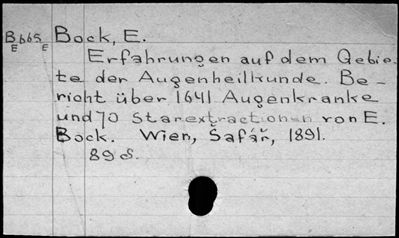 B665 Bock, E.
E E
Erfahrungen auf dem Gebie-
te der Augenheilkunde. Be-
richt über 1641 Augenkranke
und 70 Starextractionen von E.
Bock. Wien, Šafář, 1891.
89 S.